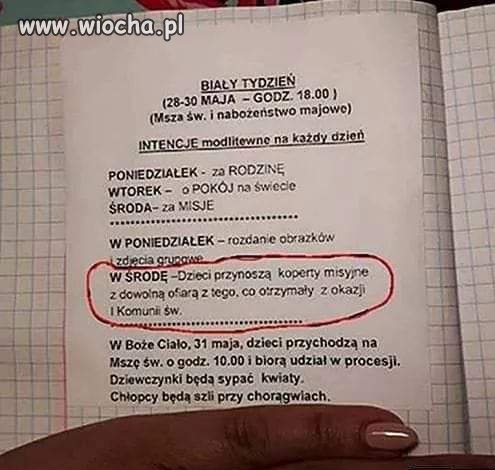 www.wiocha.pl
BIAŁY TYDZIEŃ
(28-30 MAJA – GODZ. 18.00 )
(Msza św. i nabożeństwo majowe)
INTENCJE modlitewne na każdy dzień
PONIEDZIAŁEK - za RODZINĘ
WTOREK – o POKÓJ na świecie
ŚRODA– za MISJE
W PONIEDZIAŁEK – rozdanie obrazków
i zdjęcia grupowe
W ŚRODĘ –Dzieci przynoszą koperty misyjne
z dowolną ofiarą z tego, co otrzymały z okazji
I Komunii św.
W Boże Ciało, 31 maja, dzieci przychodzą na
Mszę św. o godz. 10.00 i biorą udział w procesji.
Dziewczynki będą sypać kwiaty.
Chłopcy będą szli przy chorągwiach.